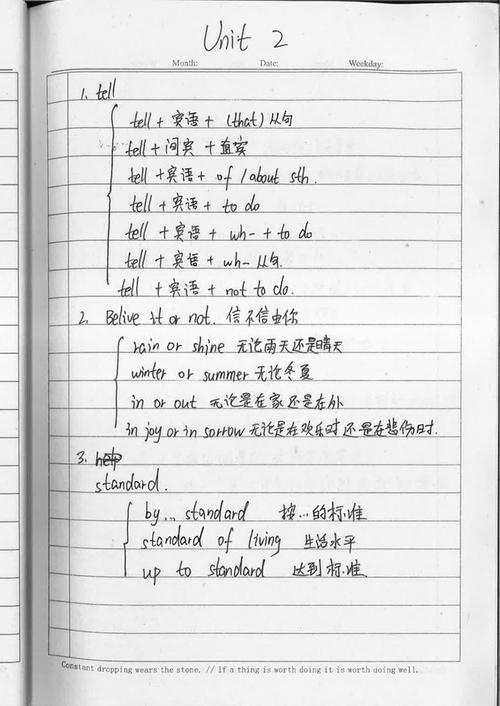 Unit 2
Month: Date: Weekday:
1. tell
tell +宾语 + (that) 从句
tell + 间宾 + 直宾
tell + 宾语 + of / about sth.
tell + 宾语 + to do
tell + 宾语 + wh- + to do
tell + 宾语 + wh- 从句.
tell + 宾语 + not to do.
2. Belive it or not. 信不信由你
rain or shine 无论雨天还是晴天
winter or summer 无论冬夏
in or out 无论是在家还是在外
in joy or in sorrow 无论是在欢乐时还是在悲伤时.
3.
standard.
by... standard 按...的标准
standard of living 生活水平
up to standard 达到标准
Constant dropping wears the stone. // If a thing is worth doing it is worth doing well.